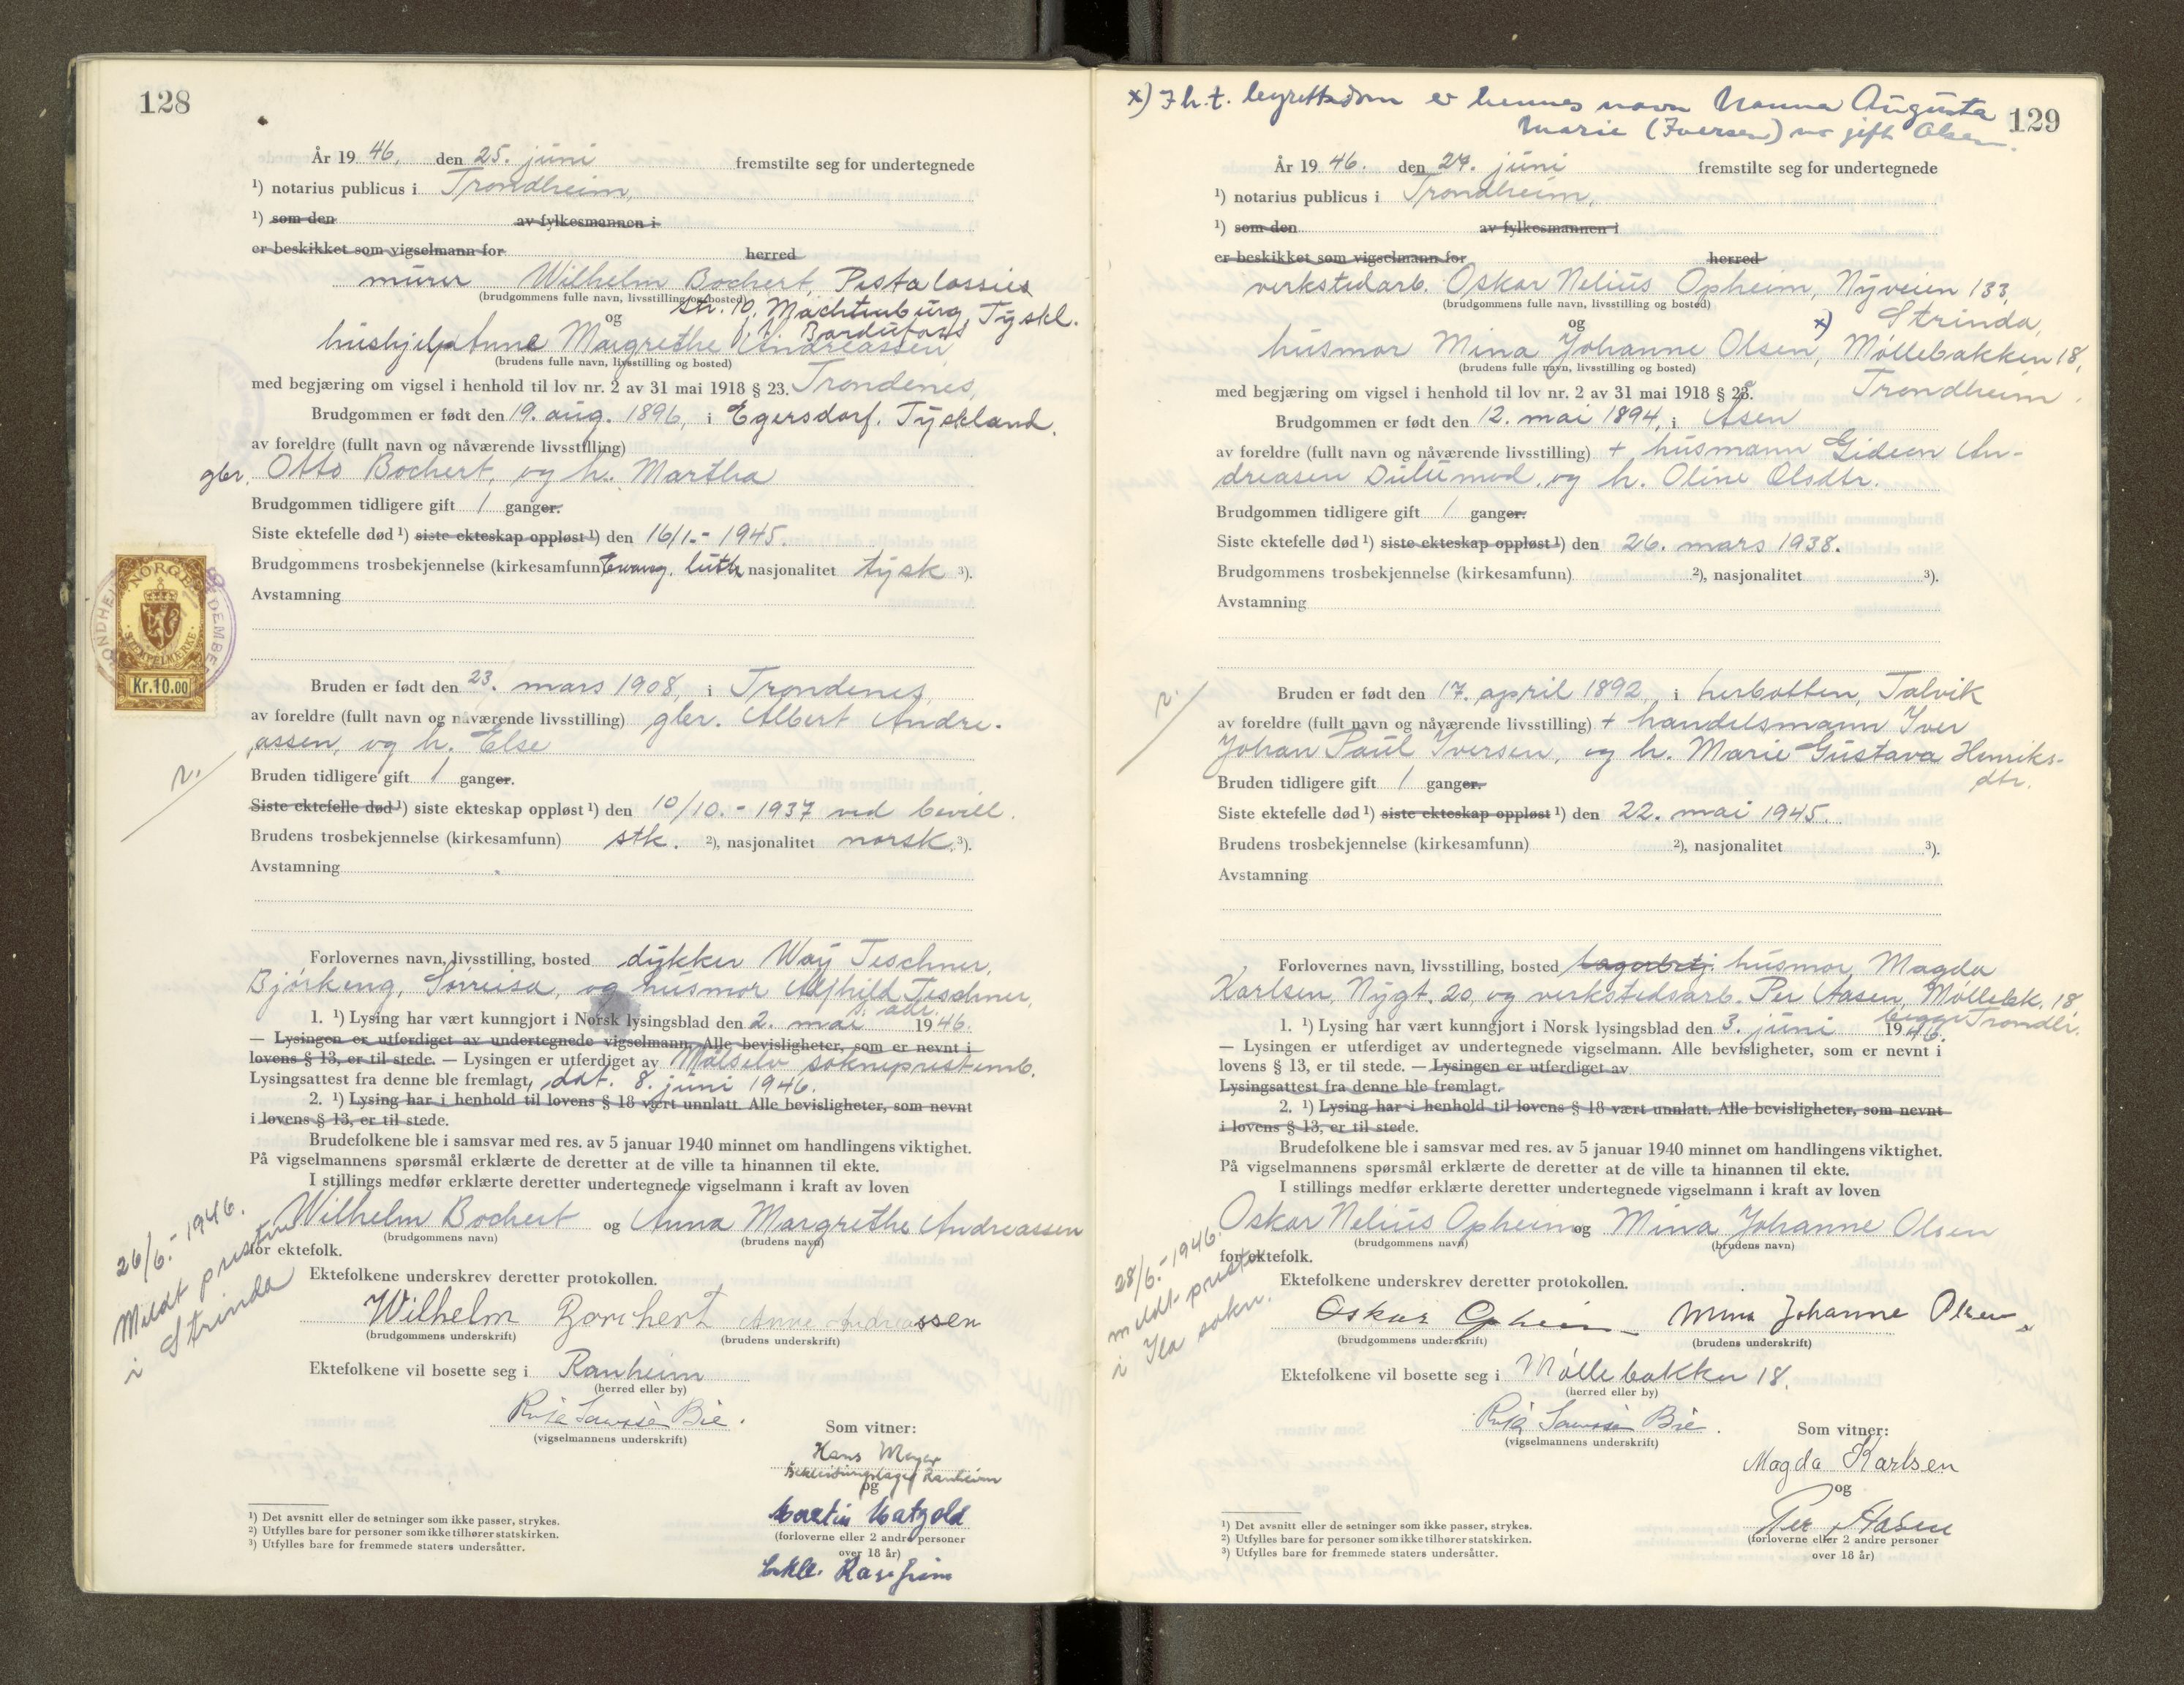 128
År 19 46, den 25. juni fremstilte seg for undertegnede
¹) notarius publicus i Trondheim,
¹) som den av fylkesmannen i
er beskikket som vigselmann for herred
murer Wilhelm Bochert, Pestalossies
(brudgommens fulle navn, livsstilling og bosted)
str. 10, Machtenburg, Tyskl.
og
hushjelp Anne Margrethe Andreassen
(brudens fulle navn, livsstilling og bosted)
med begjæring om vigsel i henhold til lov nr. 2 av 31 mai 1918 § 23. Trondenes,
Brudgommen er født den 19. aug. 1896, i Egersdorf. Tyskland.
av foreldre (fullt navn og nåværende livsstilling)
gbr. Otto Bochert, og h. Martha
Brudgommen tidligere gift 1 ganger.
Siste ektefelle død ¹) siste ekteskap oppløst ¹) den 16/1.- 1945.
Brudgommens trosbekjennelse (kirkesamfunn) Evang. luth nasjonalitet tysk ³).
Avstamning
NORGE
STEMPELMERKE
Kr.10.00
Bruden er født den 23. mars 1908, i Trondenes,
av foreldre (fullt navn og nåværende livsstilling) gbr. Albert Andre-
assen, og h. Else
Bruden tidligere gift 1 ganger.
Siste ektefelle død ¹) siste ekteskap oppløst ¹) den 10/10.- 1937 ved bevill.
Brudens trosbekjennelse (kirkesamfunn) stk. ²), nasjonalitet norsk. ³).
Avstamning
Forlovernes navn, livsstilling, bosted dykker Way Teschner,
Bjørkeng, Sørreisa, og husmor Alfhild Teschner,
s. adr.
1. ¹) Lysing har vært kunngjort i Norsk lysingsblad den 2. mai 1946.
— Lysingen er utferdiget av undertegnede vigselmann. Alle bevisligheter, som er nevnt i
lovens § 13, er til stede. — Lysingen er utferdiget av Målselv sokneprestemb.
Lysingsattest fra denne ble fremlagt, dat. 8. juni 1946.
2. ¹) Lysing har i henhold til lovens § 18 vært unnlatt. Alle bevisligheter, som nevnt
i lovens § 13, er til stede.
Brudefolkene ble i samsvar med res. av 5 januar 1940 minnet om handlingens viktighet.
På vigselmannens spørsmål erklærte de deretter at de ville ta hinannen til ekte.
I stillings medfør erklærte deretter undertegnede vigselmann i kraft av loven
Wilhelm Bochert og Anna Margrethe Andreassen
(brudgommens navn) (brudens navn)
for ektefolk.
26/6.- 1946.
Meldt presten
i Strinda
Ektefolkene underskrev deretter protokollen.
Wilhelm Borchert Anne Andreassen
(brudgommens underskrift) (brudens underskrift)
Ektefolkene vil bosette seg i Ranheim
(herred eller by)
(vigselmannens underskrift)
Som vitner:
Hans Meyer
og
Martin Matzold
(forloverne eller 2 andre personer
over 18 år)
¹) Det avsnitt eller de setninger som ikke passer, strykes.
²) Utfylles bare for personer som ikke tilhører statskirken.
³) Utfylles bare for fremmede staters undersåtter.
x) I h.t. leyrettsdom er hennes navn Nanna Augusta
Marie (Iversen) nå gift Olsen.
129
År 19 46. den 27. juni fremstilte seg for undertegnede
¹) notarius publicus i Trondheim,
¹) som den av fylkesmannen i
er beskikket som vigselmann for herred
verkstedarb. Oskar Nelius Opheim, Nyveien 133,
(brudgommens fulle navn, livsstilling og bosted)
og x) Strinda,
husmor Mina Johanne Olsen, Møllebakken 18,
(brudens fulle navn, livsstilling og bosted)
med begjæring om vigsel i henhold til lov nr. 2 av 31 mai 1918 § 23. Trondheim.
Brudgommen er født den 12. mai 1894, i Åsen
av foreldre (fullt navn og nåværende livsstilling) + husmann Gideon An-
dreasen Dulumod, og h. Oline Olsdtr.
Brudgommen tidligere gift 1 ganger.
Siste ektefelle død ¹) siste ekteskap oppløst ¹) den 26. mars 1938.
Brudgommens trosbekjennelse (kirkesamfunn) ²), nasjonalitet ³).
Avstamning
Bruden er født den 17. april 1892, i Lerbotten, Talvik
av foreldre (fullt navn og nåværende livsstilling) + handelsmann Iver
Johan Paul Iversen, og h. Marie Gustava Henriks-
dtr.
Bruden tidligere gift 1 ganger.
Siste ektefelle død ¹) siste ekteskap oppløst ¹) den 22. mai 1945.
Brudens trosbekjennelse (kirkesamfunn) ²), nasjonalitet ³).
Avstamning
Forlovernes navn, livsstilling, bosted husmor Magda
Karlsen, Nygt. 20, og verkstedsarb. Per Aasen, Møllebk. 18
begge Trondh.
1. ¹) Lysing har vært kunngjort i Norsk lysingsblad den 3. juni 1946.
— Lysingen er utferdiget av undertegnede vigselmann. Alle bevisligheter, som er nevnt i
lovens § 13, er til stede. — Lysingen er utferdiget av
Lysingsattest fra denne ble fremlagt.
2. ¹) Lysing har i henhold til lovens § 18 vært unnlatt. Alle bevisligheter, som nevnt
i lovens § 13, er til stede.
Brudefolkene ble i samsvar med res. av 5 januar 1940 minnet om handlingens viktighet.
På vigselmannens spørsmål erklærte de deretter at de ville ta hinannen til ekte.
I stillings medfør erklærte deretter undertegnede vigselmann i kraft av loven
Oskar Nelius Opheim og Mina Johanne Olsen
(brudgommens navn) (brudens navn)
for ektefolk.
28/6.- 1946.
meldt presten
i Ila sokn.
Ektefolkene underskrev deretter protokollen.
Oskar Opheim Mina Johanne Olsen
(brudgommens underskrift) (brudens underskrift)
Ektefolkene vil bosette seg i Møllebakken 18.
(herred eller by)
(vigselmannens underskrift)
Som vitner:
Magda Karlsen
og
Per Aasen
(forloverne eller 2 andre personer
over 18 år)
¹) Det avsnitt eller de setninger som ikke passer, strykes.
²) Utfylles bare for personer som ikke tilhører statskirken.
³) Utfylles bare for fremmede staters undersåtter.